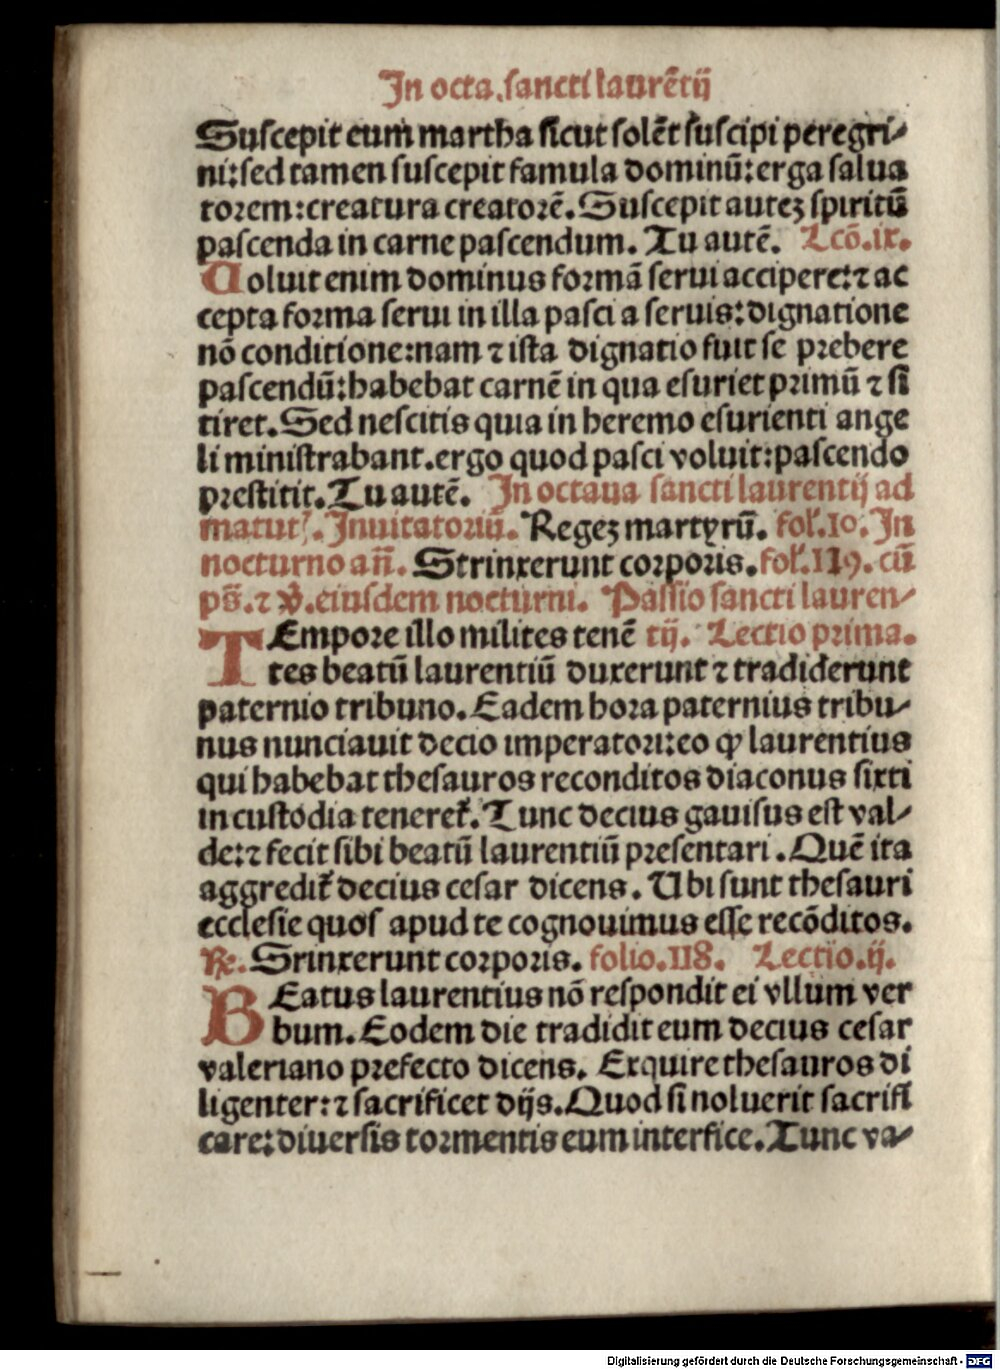 In octa. sancti laurētij
Suscepit eum martha sicut solēt suscipi peregri-
ni: sed tamen suscepit famula dominū: erga salua
torem: creatura creatorē. Suscepit autez spiritū
pascenda in carne pascendum. Tu autē. Lcō. ix.
Uoluit enim dominus formā serui accipere: ⁊ ac
cepta forma serui in illa pasci a seruis: dignatione
nō conditione: nam ⁊ ista dignatio fuit se prebere
pascendū: habebat carnē in qua esuriet primū ⁊ si
tiret. Sed nescitis quia in heremo esurienti ange
li ministrabant. ergo quod pasci voluit: pascendo
prestitit. Tu autē. In octaua sancti laurentij ad
matut᷒. Inuitatoriū. Regez martyrū. fol. 10. In
nocturno añ. Strinxerunt corporis. fol. 119. cū
ps̄. ⁊ v̄. eiusdem nocturni. Passio sancti lauren-
TEmpore illo milites tenē tij. Lectio prima.
tes beatū laurentiū duxerunt ⁊ tradiderunt
paternio tribuno. Eadem hora paternius tribu-
nus nunciauit decio imperatori: eo ꝙ laurentius
qui habebat thesauros reconditos diaconus sixti
in custodia teneret᷒. Tunc decius gauisus est val-
de: ⁊ fecit sibi beatū laurentiū presentari. Quē ita
aggredit᷒ decius cesar dicens. Ubi sunt thesauri
ecclesie quos apud te cognouimus esse recōditos.
℞. Srinxerunt corporis. folio. 118. Lectio. ij.
BEatus laurentius nō respondit ei vllum ver
bum. Eodem die tradidit eum decius cesar
valeriano prefecto dicens. Exquire thesauros di
ligenter: ⁊ sacrificet dijs. Quod si noluerit sacrifi
care: diuersis tormentis eum interfice. Tunc va-
Digitalisierung gefördert durch die Deutsche Forschungsgemeinschaft - DFG